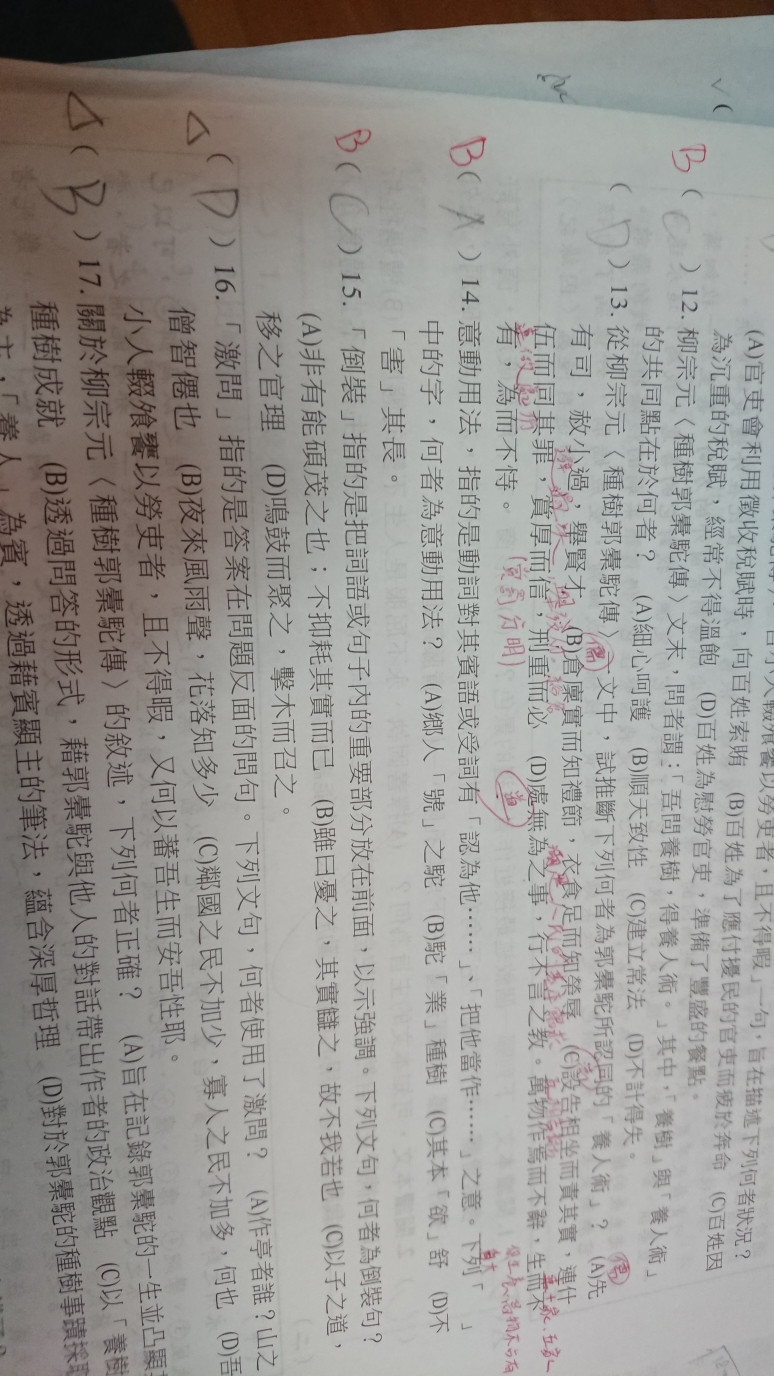 (A)官吏會利用徵收稅賦時，向百姓索賄　(B)百姓為了應付擾民的官吏而疲於奔命　(C)百姓因
為沉重的稅賦，經常不得溫飽　(D)百姓為慰勞官吏，準備了豐盛的餐點。
B ( C ) 12. 柳宗元〈種樹郭橐駝傳〉文末，問者謂：「吾問養樹，得養人術。」其中，「養樹」與「養人術」
的共同點在於何者？　(A)細心呵護　(B)順天致性　(C)建立常法　(D)不計得失。
( D ) 13. 從柳宗元〈種樹郭橐駝傳〉文中，試推斷下列何者為郭橐駝所認同的「養人術」？　(A)先
有司，赦小過，舉賢才　(B)倉廩實而知禮節，衣食足而知榮辱　(C)設告相坐而責其實，連什
伍而同其罪，賞厚而信，刑重而必　(D)處無為之事，行不言之教。萬物作焉而不辭，生而不
有，為而不恃。
(賞罰分明)
儒
儒
B ( A ) 14. 意動用法，指的是動詞對其賓語或受詞有「認為他……」、「把他當作……」之意。下列「　」
中的字，何者為意動用法？　(A)鄉人「號」之駝　(B)駝「業」種樹　(C)其本「欲」舒　(D)不
「害」其長。
B ( C ) 15. 「倒裝」指的是把詞語或句子內的重要部分放在前面，以示強調。下列文句，何者為倒裝句？
(A)非有能碩茂之也；不抑耗其實而已　(B)雖曰憂之，其實讎之，故不我若也　(C)以子之道，
移之官理　(D)鳴鼓而聚之，擊木而召之。
( D ) 16. 「激問」指的是答案在問題反面的問句。下列文句，何者使用了激問？　(A)作亭者誰？山之
僧智僊也　(B)夜來風雨聲，花落知多少　(C)鄰國之民不加少，寡人之民不加多，何也　(D)吾
小人輟飧饔以勞吏者，且不得暇，又何以蕃吾生而安吾性耶。
( B ) 17. 關於柳宗元〈種樹郭橐駝傳〉的敘述，下列何者正確？　(A)旨在記錄郭橐駝的一生並凸顯
種樹成就　(B)透過問答的形式，藉郭橐駝與他人的對話帶出作者的政治觀點　(C)以「養樹
為主，「養人」為賓，透過藉賓顯主的筆法，蘊含深厚哲理　(D)對於郭橐駝的種樹事蹟採